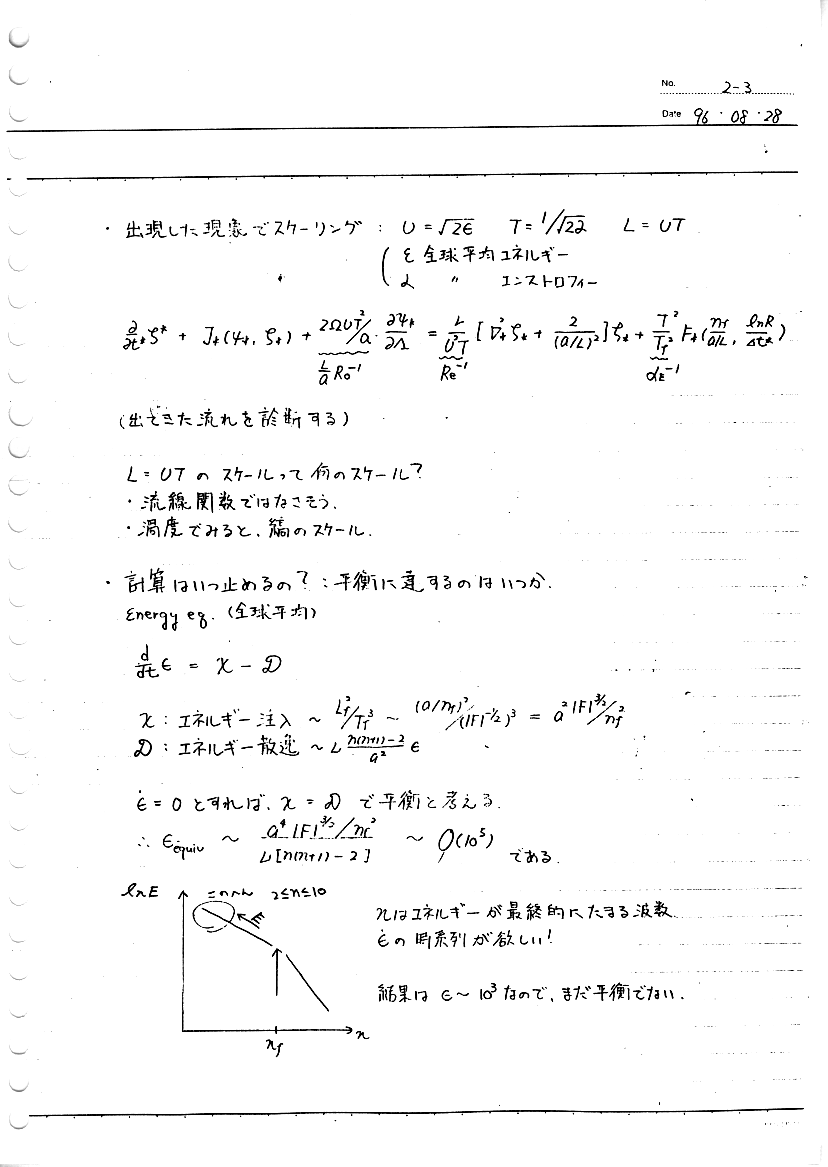 No. 2-3
Date 96・08・28
・出現した現象でスケーリング : U = √2ϵ T = 1/√2𝒬 L = UT
( ε 全球平均エネルギー
𝒬 〃 エンストロフィー
∂/∂t* ζ* + J*(ψ*, ζ*) + 2ΩUT²/a · ∂ψ*/∂λ = ν/U²T [∇*² ζ* + 2/(a/L)²] ζ* + T²/Tf² F*(nf/a/L, lnR/Δt*)
L/a Ro⁻¹ Re⁻¹ αE⁻¹
(出てきた流れを診断する)
L = UT のスケールって何のスケール?
・流線関数ではなさそう.
・渦度でみると、縞のスケール.
・計算はいつ止めるの? : 平衡に達するのはいつか.
Energy eq. (全球平均)
d/dt ϵ = χ − 𝒟
χ : エネルギー注入 ~ Lf²/Tf³ ~ (a/nf)²/(|F|^-1/2)³ = a²|F|^3/2/nf²
𝒟 : エネルギー散逸 ~ ν n(n+1)−2/a² ϵ
ϵ̇ = 0 とすれば、χ = 𝒟 で平衡と考える.
∴ ϵequiv ~ a⁴|F|^3/2/nf² / ν[n(n+1)−2] ~ O(10⁵) である.
lnE このへん 2≤n≤10
E
nはエネルギーが最終的にたまる波数
ϵ̇の時系列が欲しい!
結果は ϵ~10³なので、まだ平衡でない.
n
nf